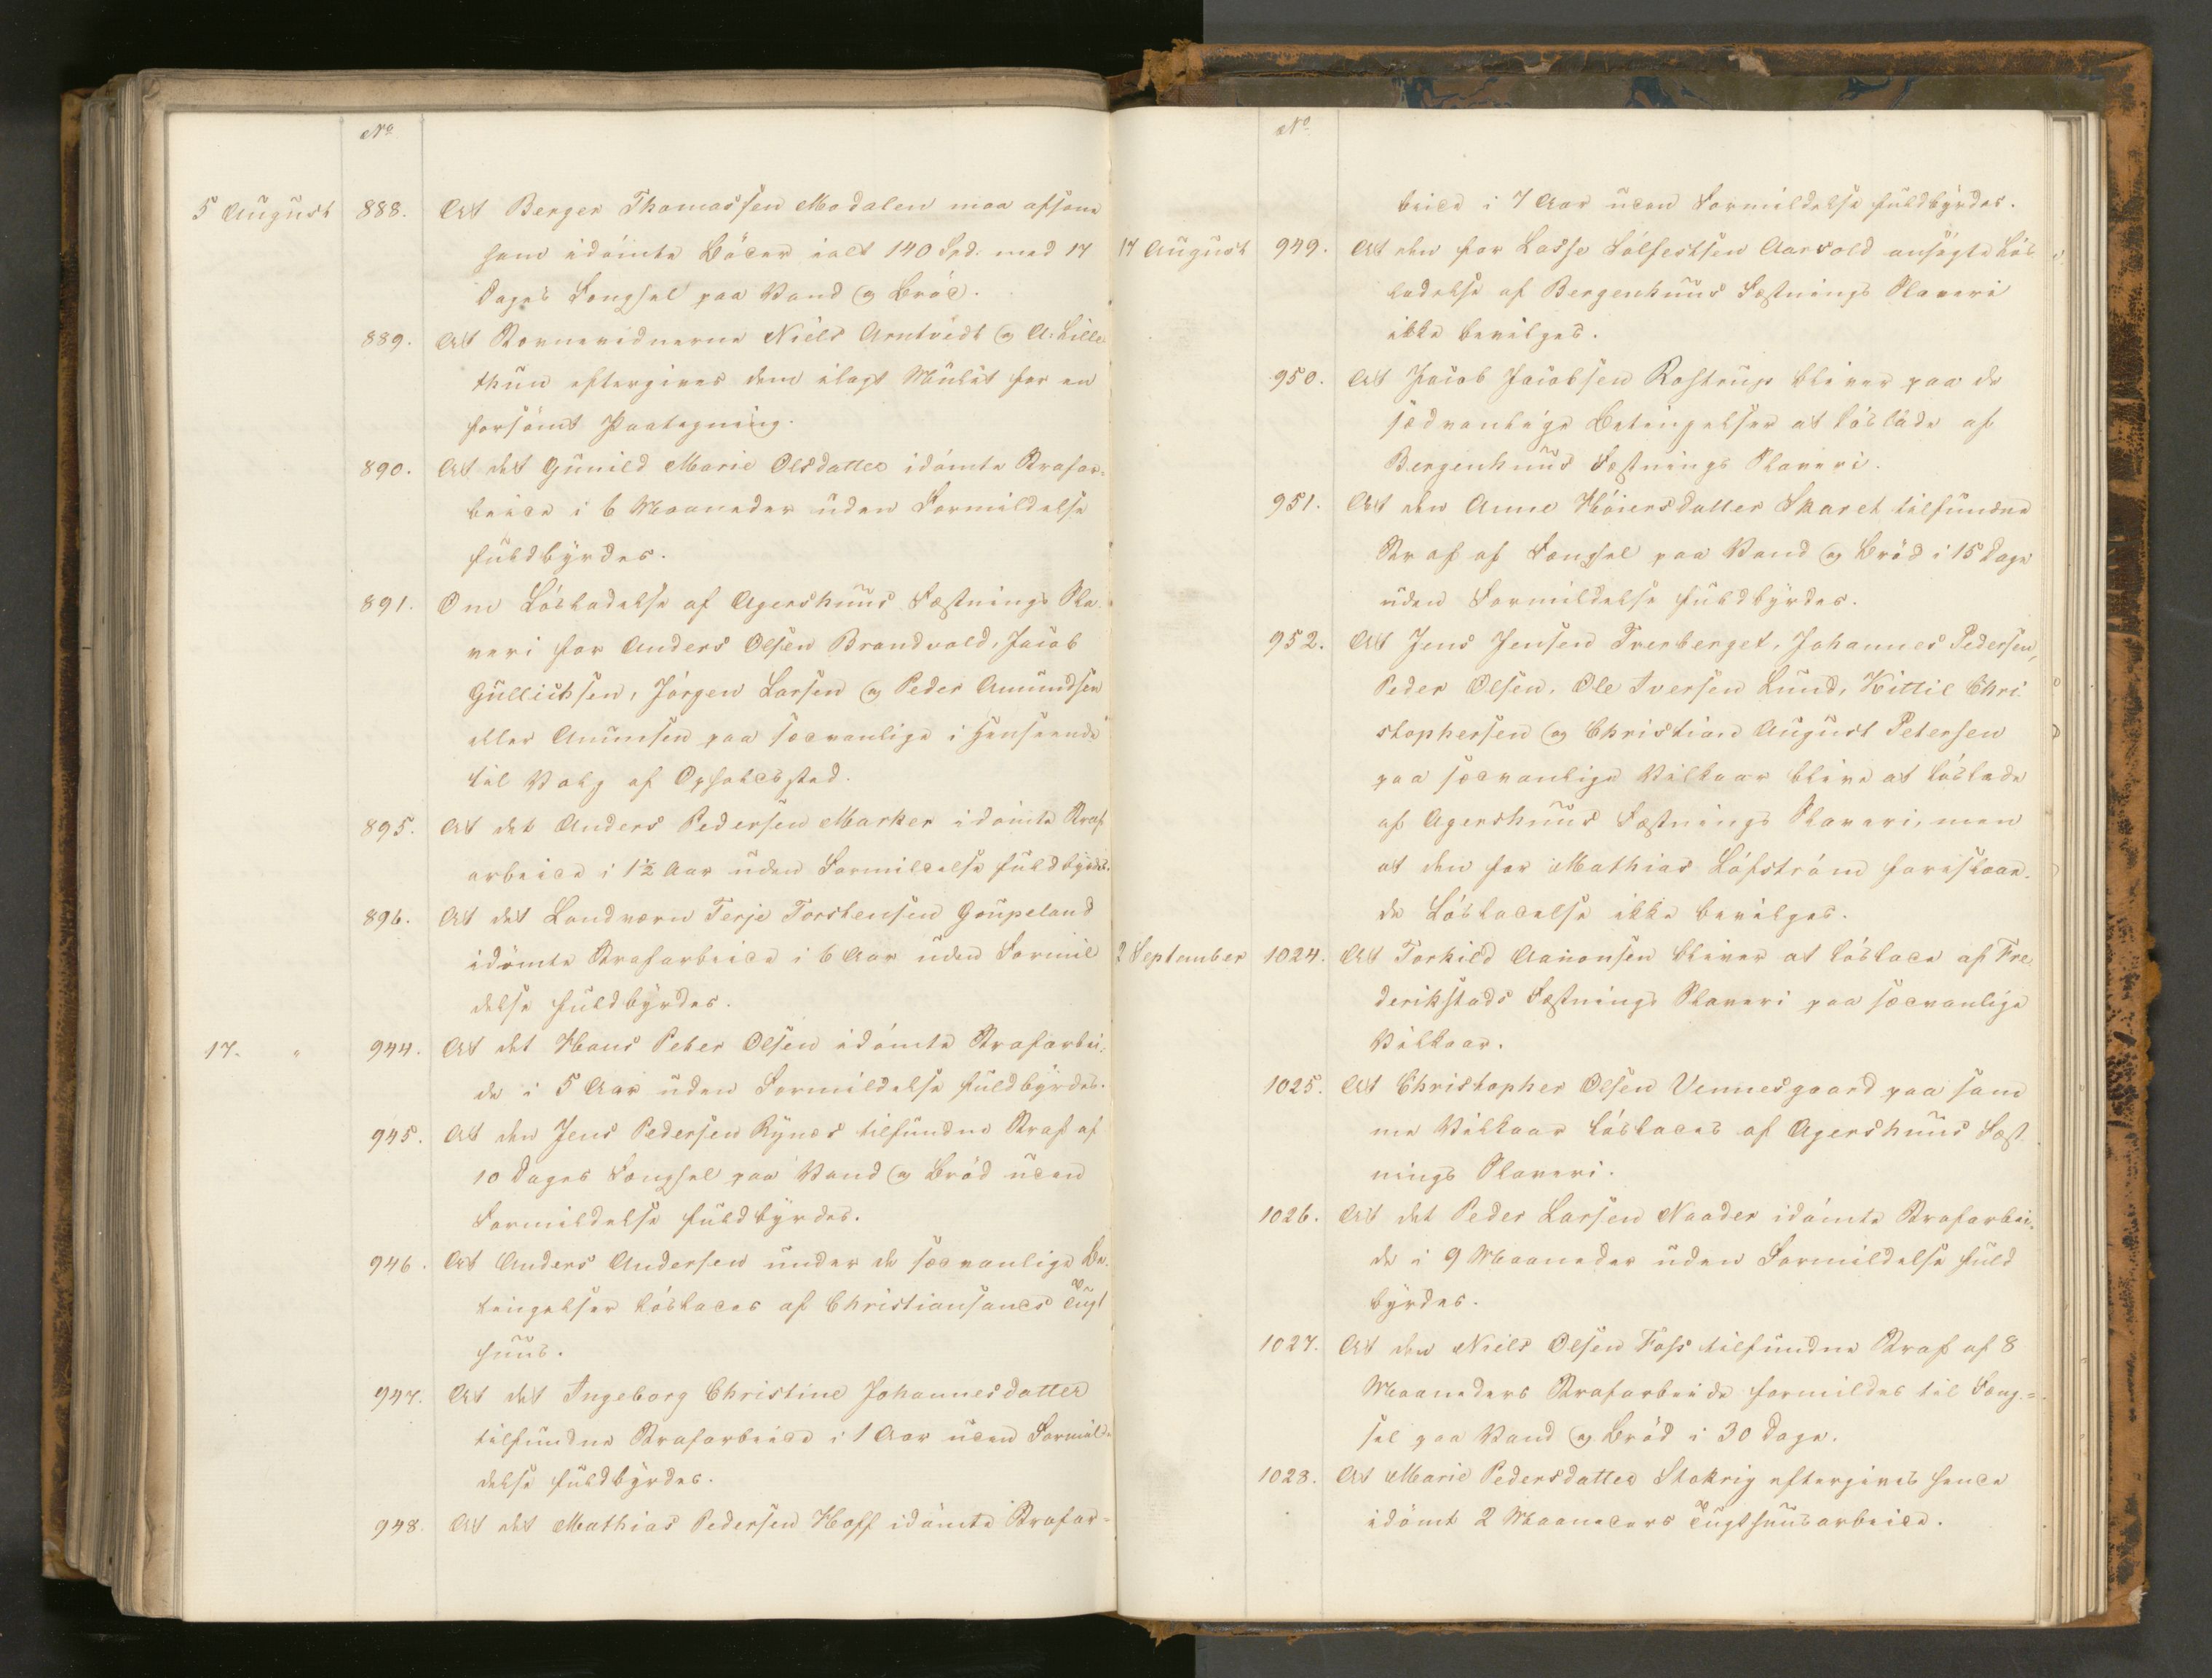 No
5 August 888. At Berger Thomassen Modalen maa afsone
ham idömte Böder ialt 140 Spd. med 17
Dages Fængsel paa Vand og Bröd.
889. At Stevnevidnerne Niels Arntvedt og A. Lille
thun eftergives dem ilagt Mulct for en
forsömt Paategning.
890. At det Gunild Marie Olsdatter idömte Strafar=
beide i 6 Maaneder uden Formildelse
fuldbyrdes.
891. Om Lösladelse af Agershuus Fæstnings Sla
veri for Anders Olsen Brandvold, Jacob
Gullichsen, Jörgen Larsen og Peder Amundsen
eller Anunsen paa sædvanlige i Henseende
til Valg af Opholdssted.
895. At det Anders Pedersen Marker idömte Straf
arbeide i 1½ Aar uden Formildelse fuldbyrdes.
896. At det Landværn Terje Torstensen Goupeland
idömte Strafarbeide i 6 Aar uden Formil
delse fuldbyrdes.
17. " 944. At det Hans Peter Olsen idömte Strafarbei=
de i 5 Aar uden Formildelse fuldbyrdes.
945. At den Jens Pedersen Rynes tilfundne Straf af
10 Dages Fængsel paa Vand og Bröd uden
Formildelse fuldbyrdes.
946. At Anders Andersen under de sædvanlige Be
tingelser löslades af Christiansands Tugt
huus.
947. At det Ingeborg Christine Johannesdatter
tilfundne Strafarbeide i 1 Aar uden Formil=
delse fuldbyrdes.
948. At det Mathias Pedersen Hoff idömte Strafar=
No
beide i 7 Aar uden Formildelse fuldbyrdes.
17 August 949. At den for Lasse Sölfestsen Aarvold ansögte Lös
ladelse af Bergenhuus Fæstnings Slaveri
ikke bevilges.
950. At Jacob Jacobsen Rostrup bliver paa de
sædvanlige Betingelser at löslade af
Bergenhuus Fæstnings Slaveri.
951. At den Anne Höiersdatter Skaret tilfundne
Straf af Fængsel paa Vand og Bröd i 15 Dage
uden Formildelse fuldbyrdes.
952. At Jens Jensen Tverberget, Johannes Pedersen,
Peder Olsen, Ole Iversen Lund, Kittil Chri
stophersen og Christian August Petersen
paa sædvanlige Vilkaar blive at löslade
af Agershuus Fæstnings Slaveri, men
at den for Mathias Löfström foreslaae
de Lösladelse ikke bevilges.
2 September 1024. At Torkild Aanonsen bliver at löslade af Fre
derikstads Fæstnings Slaveri paa sædvanlige
Vilkaar.
1025. At Christopher Olsen Vennesgaard paa sam
me Vilkaar löslades af Agershuus Fæst
nings Slaveri.
1026. At det Peder Larsen Naader idömte Strafarbei=
de i 9 Maaneder uden Formildelse fuld
byrdes.
1027. At den Niels Olsen Foss tilfundne Straf af 8
Maaneders Strafarbeide formildes til Fæng=
sel paa Vand og Bröd i 30 Dage.
1028. At Marie Pedersdatter Stokrig eftergives hende
idömt 2 Maaneders Tugthuusarbeide.